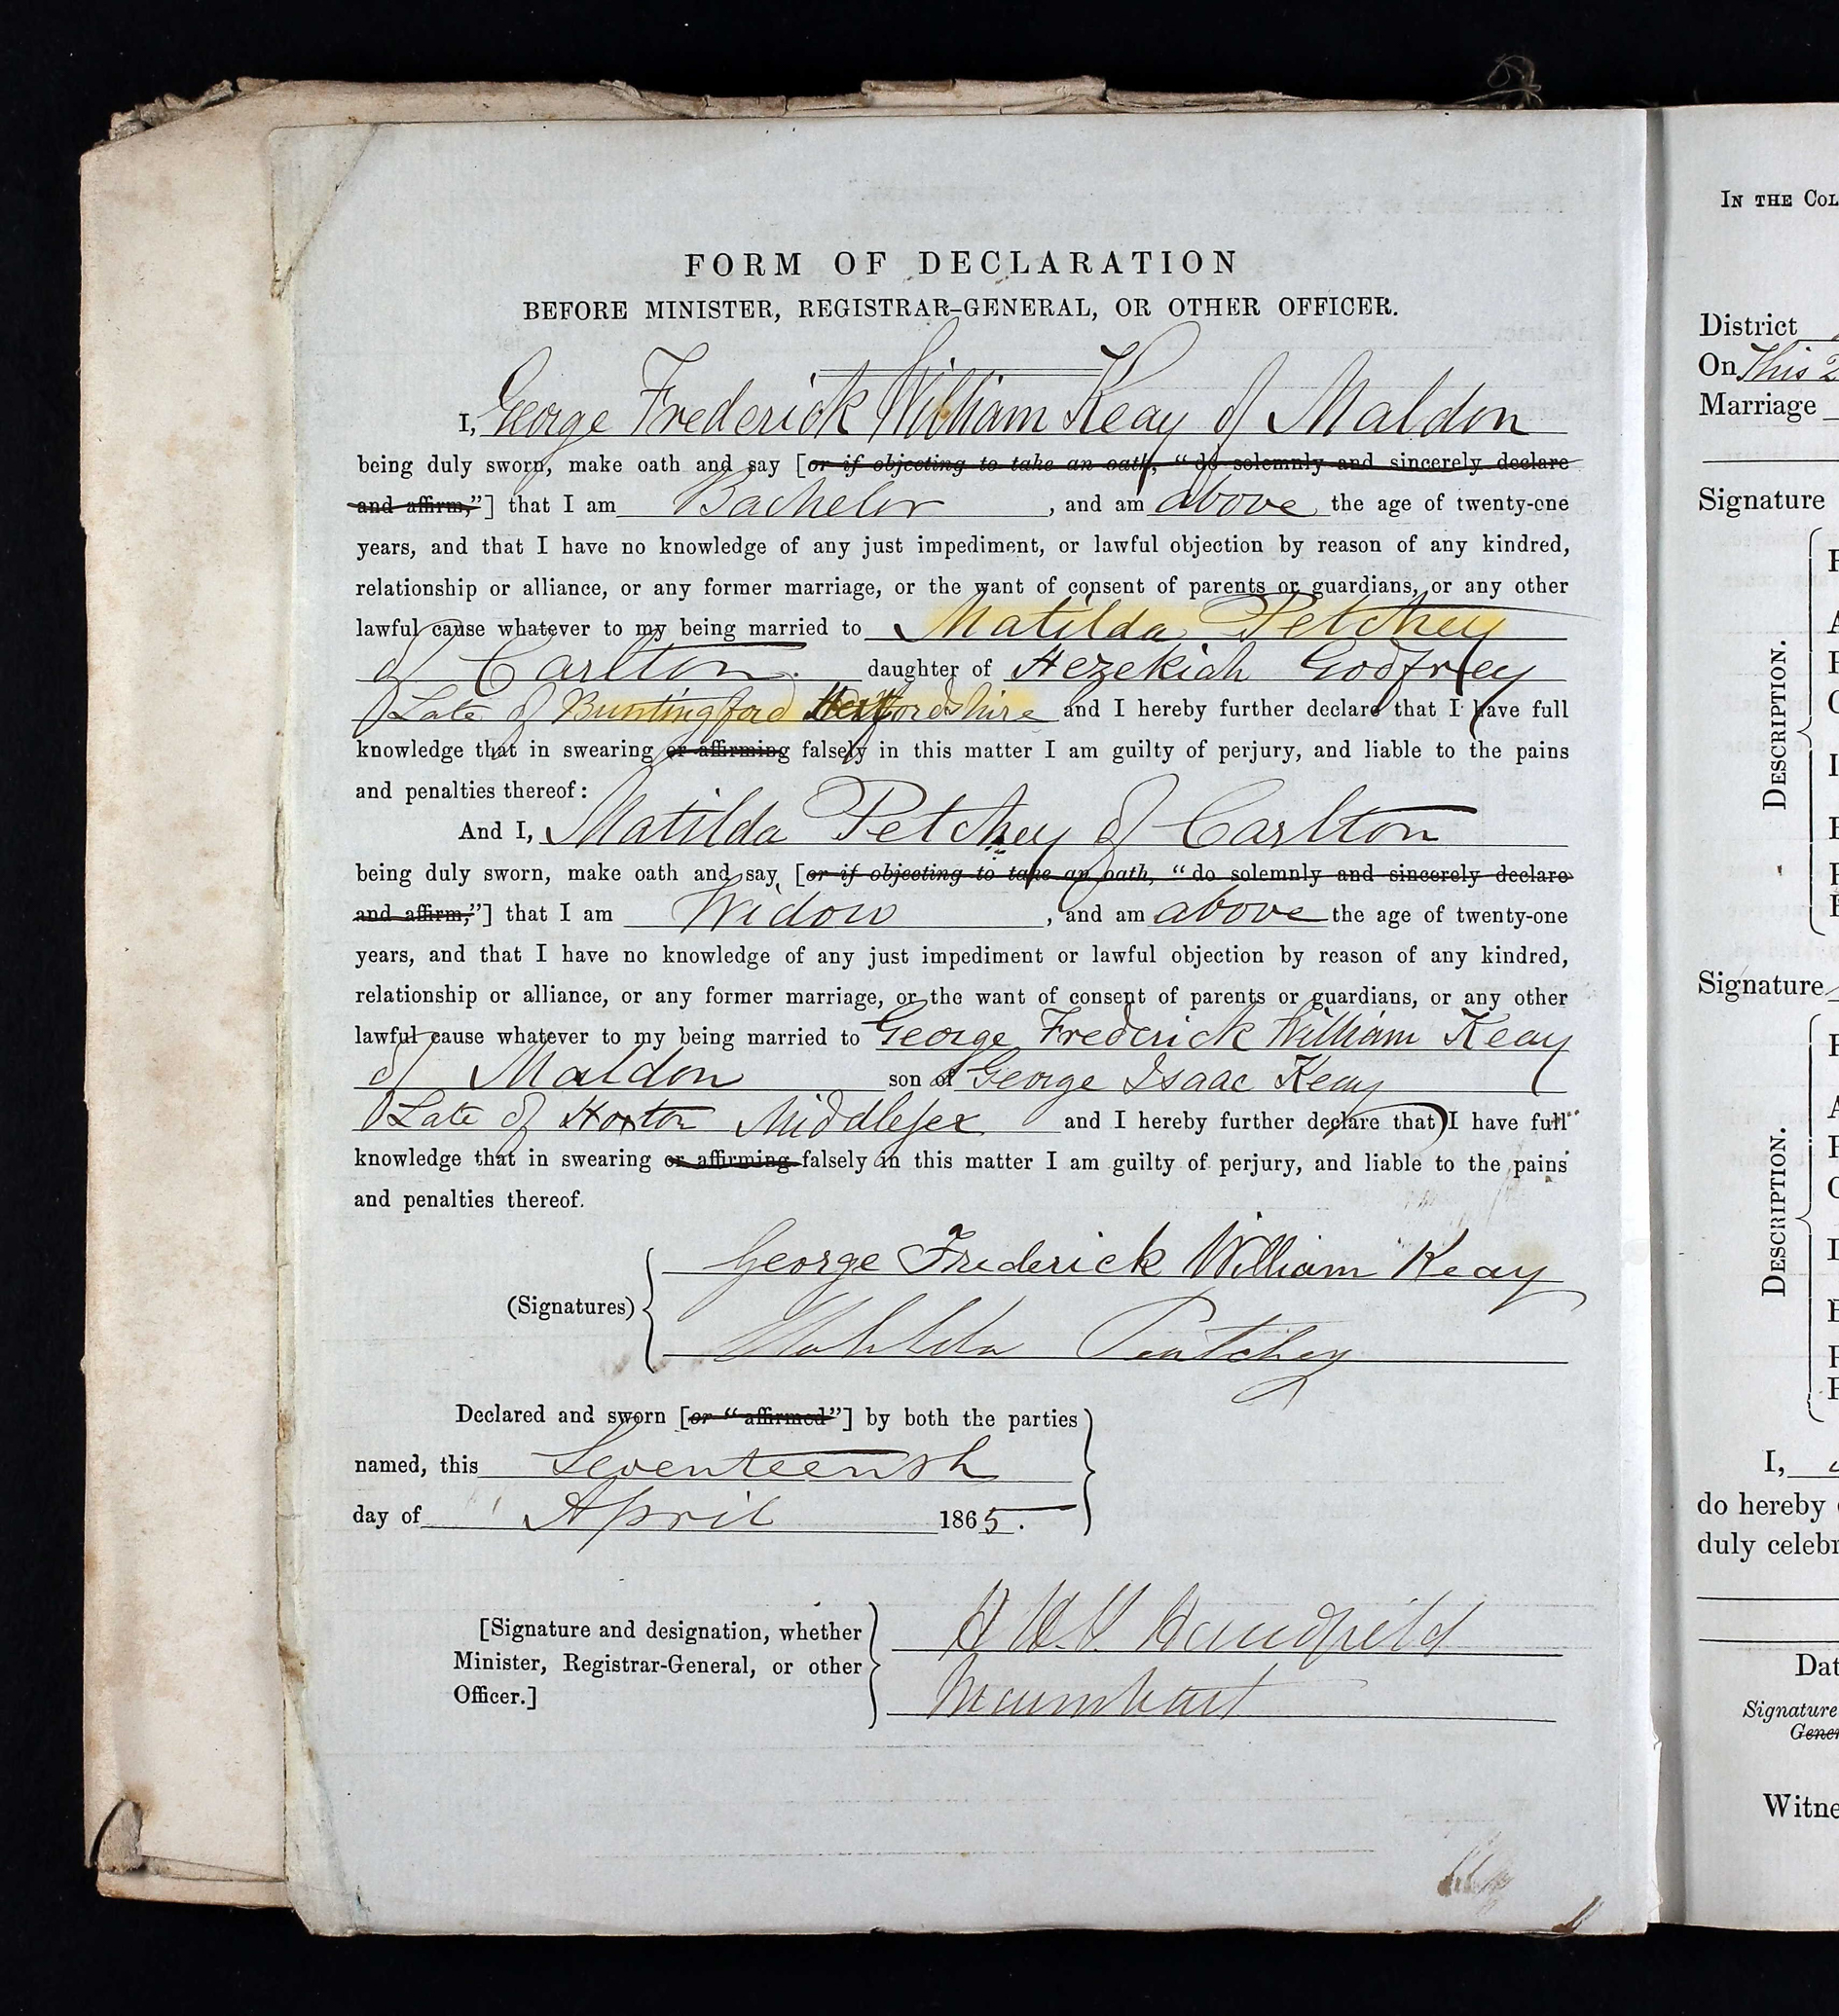 FORM OF DECLARATION
BEFORE MINISTER, REGISTRAR-GENERAL, OR OTHER OFFICER.
I, George Frederick William Keay of Maldon
being duly sworn, make oath and say [or if objecting to take an oath, "do solemnly and sincerely declare
and affirm,"] that I am Bachelor, and am above the age of twenty-one
years, and that I have no knowledge of any just impediment, or lawful objection by reason of any kindred,
relationship or alliance, or any former marriage, or the want of consent of parents or guardians, or any other
lawful cause whatever to my being married to Matilda Petchey
of Carlton. daughter of Hezekiah Godfrey
Late of Buntingford Hertfordshire and I hereby further declare that I have full
knowledge that in swearing or affirming falsely in this matter I am guilty of perjury, and liable to the pains
and penalties thereof:
And I, Matilda Petchey of Carlton
being duly sworn, make oath and say [or if objecting to take an oath, "do solemnly and sincerely declare
and affirm,"] that I am Widow, and am above the age of twenty-one
years, and that I have no knowledge of any just impediment or lawful objection by reason of any kindred,
relationship or alliance, or any former marriage, or the want of consent of parents or guardians, or any other
lawful cause whatever to my being married to George Frederick William Keay
of Maldon son of George Isaac Keay
Late of Hoxton Middlesex and I hereby further declare that I have full
knowledge that in swearing or affirming falsely in this matter I am guilty of perjury, and liable to the pains
and penalties thereof.
George Frederick William Keay
(Signatures)
Matilda Peatchey
Declared and sworn [or "affirmed"] by both the parties
named, this Seventeenth
day of April 1865.
[Signature and designation, whether
Minister, Registrar-General, or other
Officer.]
Handfield
IN THE COL
District
On This 2
Marriage
Signature
DESCRIPTION.
Signature
DESCRIPTION.
I,
do hereby
duly celebr
Dat
Signature
Gener
Witne